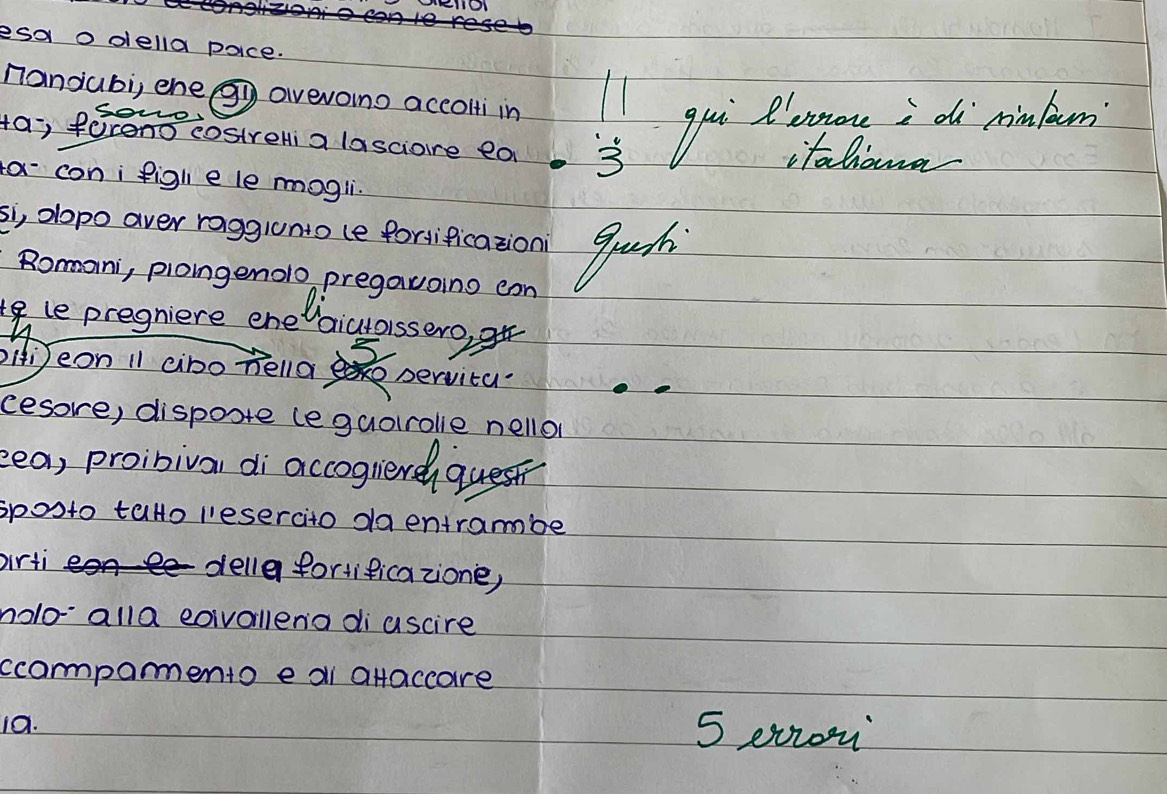 le condizioni o con le rese b
esa o della pace.
Mandubi, che gli avevano accolti in
sono
furono costretti a lasciare ca
con i figli e le mogli.
si, dopo aver raggiunto le fortificazioni
Romani, piangendo, pregavano con
le pregniere che li aiutassero,
con il cibo nella servitu-
cesare, disposte le guardie nella
cea, proibiva di accoglierli questi
sposto tutto l'esercito da entrambe
arti con le della fortificazione,
ndo- alla cavalleria di uscire
ccampamento e di attaccare
ia.
!! qui l'errore è di sintassi
italiana
3
questi
5 errori